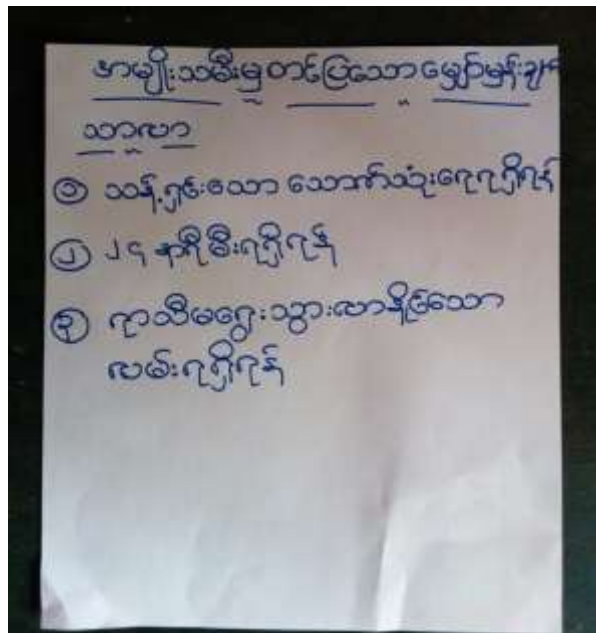 အမျိုးသမီးမှ တင်ပြသော မျှော်မှန်းချက်
သာလာ
၁ သန့်ရှင်းသော သောက်သုံးရေရရှိရန်
၂ ၂၄ နာရီမီးရရှိရန်
၃ ရာသီမရွေးသွားလာနိုင်သော
လမ်းရရှိရန်